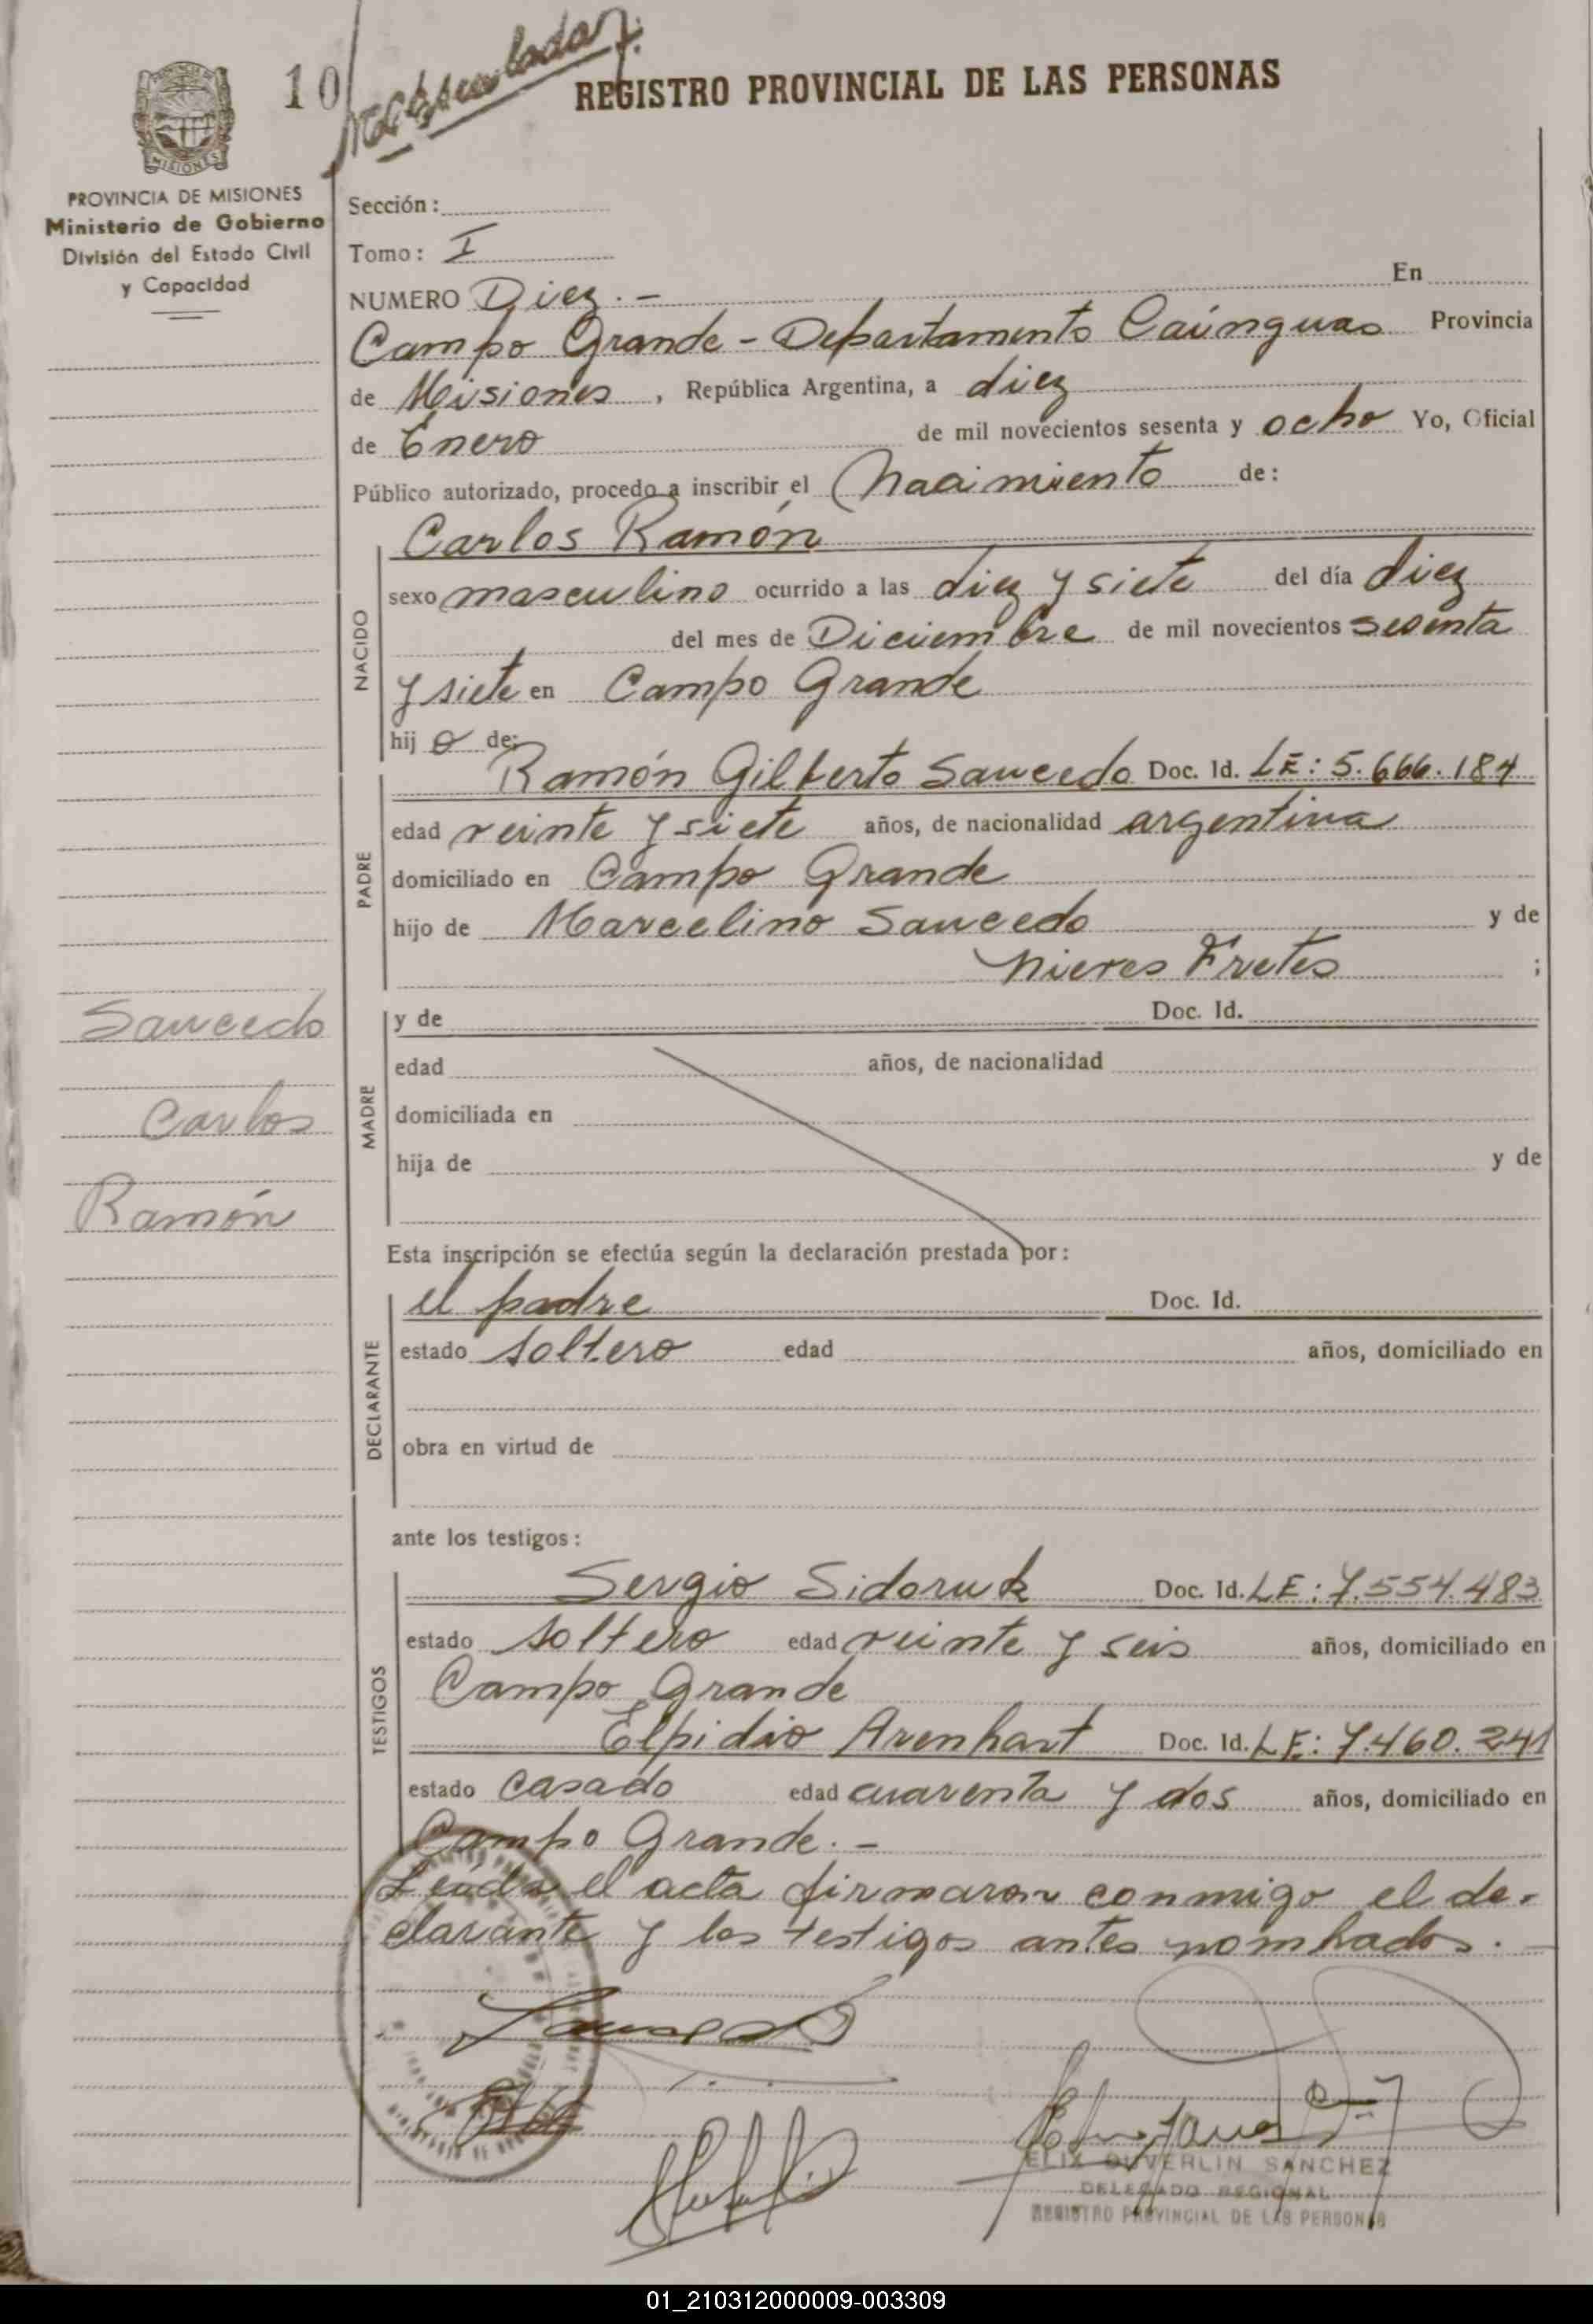 10
Matriculado
REGISTRO PROVINCIAL DE LAS PERSONAS
MISIONES
PROVINCIA DE MISIONES
Ministerio de Gobierno
División del Estado Civil
y Capacidad
Sección:
Tomo: I
NUMERO Diez.- En
Campo Grande - Departamento Caínguas Provincia
de Misiones, República Argentina, a diez
de Enero de mil novecientos sesenta y ocho Yo, Oficial
Público autorizado, procedo a inscribir el Nacimiento de:
Carlos Ramón
NACIDO
sexo masculino ocurrido a las diez y siete del día diez
del mes de Diciembre de mil novecientos sesenta
y siete en Campo Grande
hijo de:
Ramón Gilberto Saucedo Doc. Id. LE: 5.666.184
PADRE
edad veinte y siete años, de nacionalidad argentina
domiciliado en Campo Grande
hijo de Marcelino Saucedo y de
Nieves Fretes ;
Saucedo
Carlos
Ramón
MADRE
y de Doc. Id.
edad años, de nacionalidad
domiciliada en
hija de y de
Esta inscripción se efectúa según la declaración prestada por:
DECLARANTE
el padre Doc. Id.
estado soltero edad años, domiciliado en
obra en virtud de
ante los testigos:
TESTIGOS
Sergio Sidoruk Doc. Id. LE: 7.554.483
estado soltero edad veinte y seis años, domiciliado en
Campo Grande
Elpidio Arenhart Doc. Id. LE: 7.460.241
estado casado edad cuarenta y dos años, domiciliado en
Campo Grande.-
Leída el acta firmaron conmigo el de-
clarante y los testigos antes nombados.-
ELIX DUVERLIN SANCHEZ
DELEGADO REGIONAL
REGISTRO PROVINCIAL DE LAS PERSONAS
01_210312000009-003309